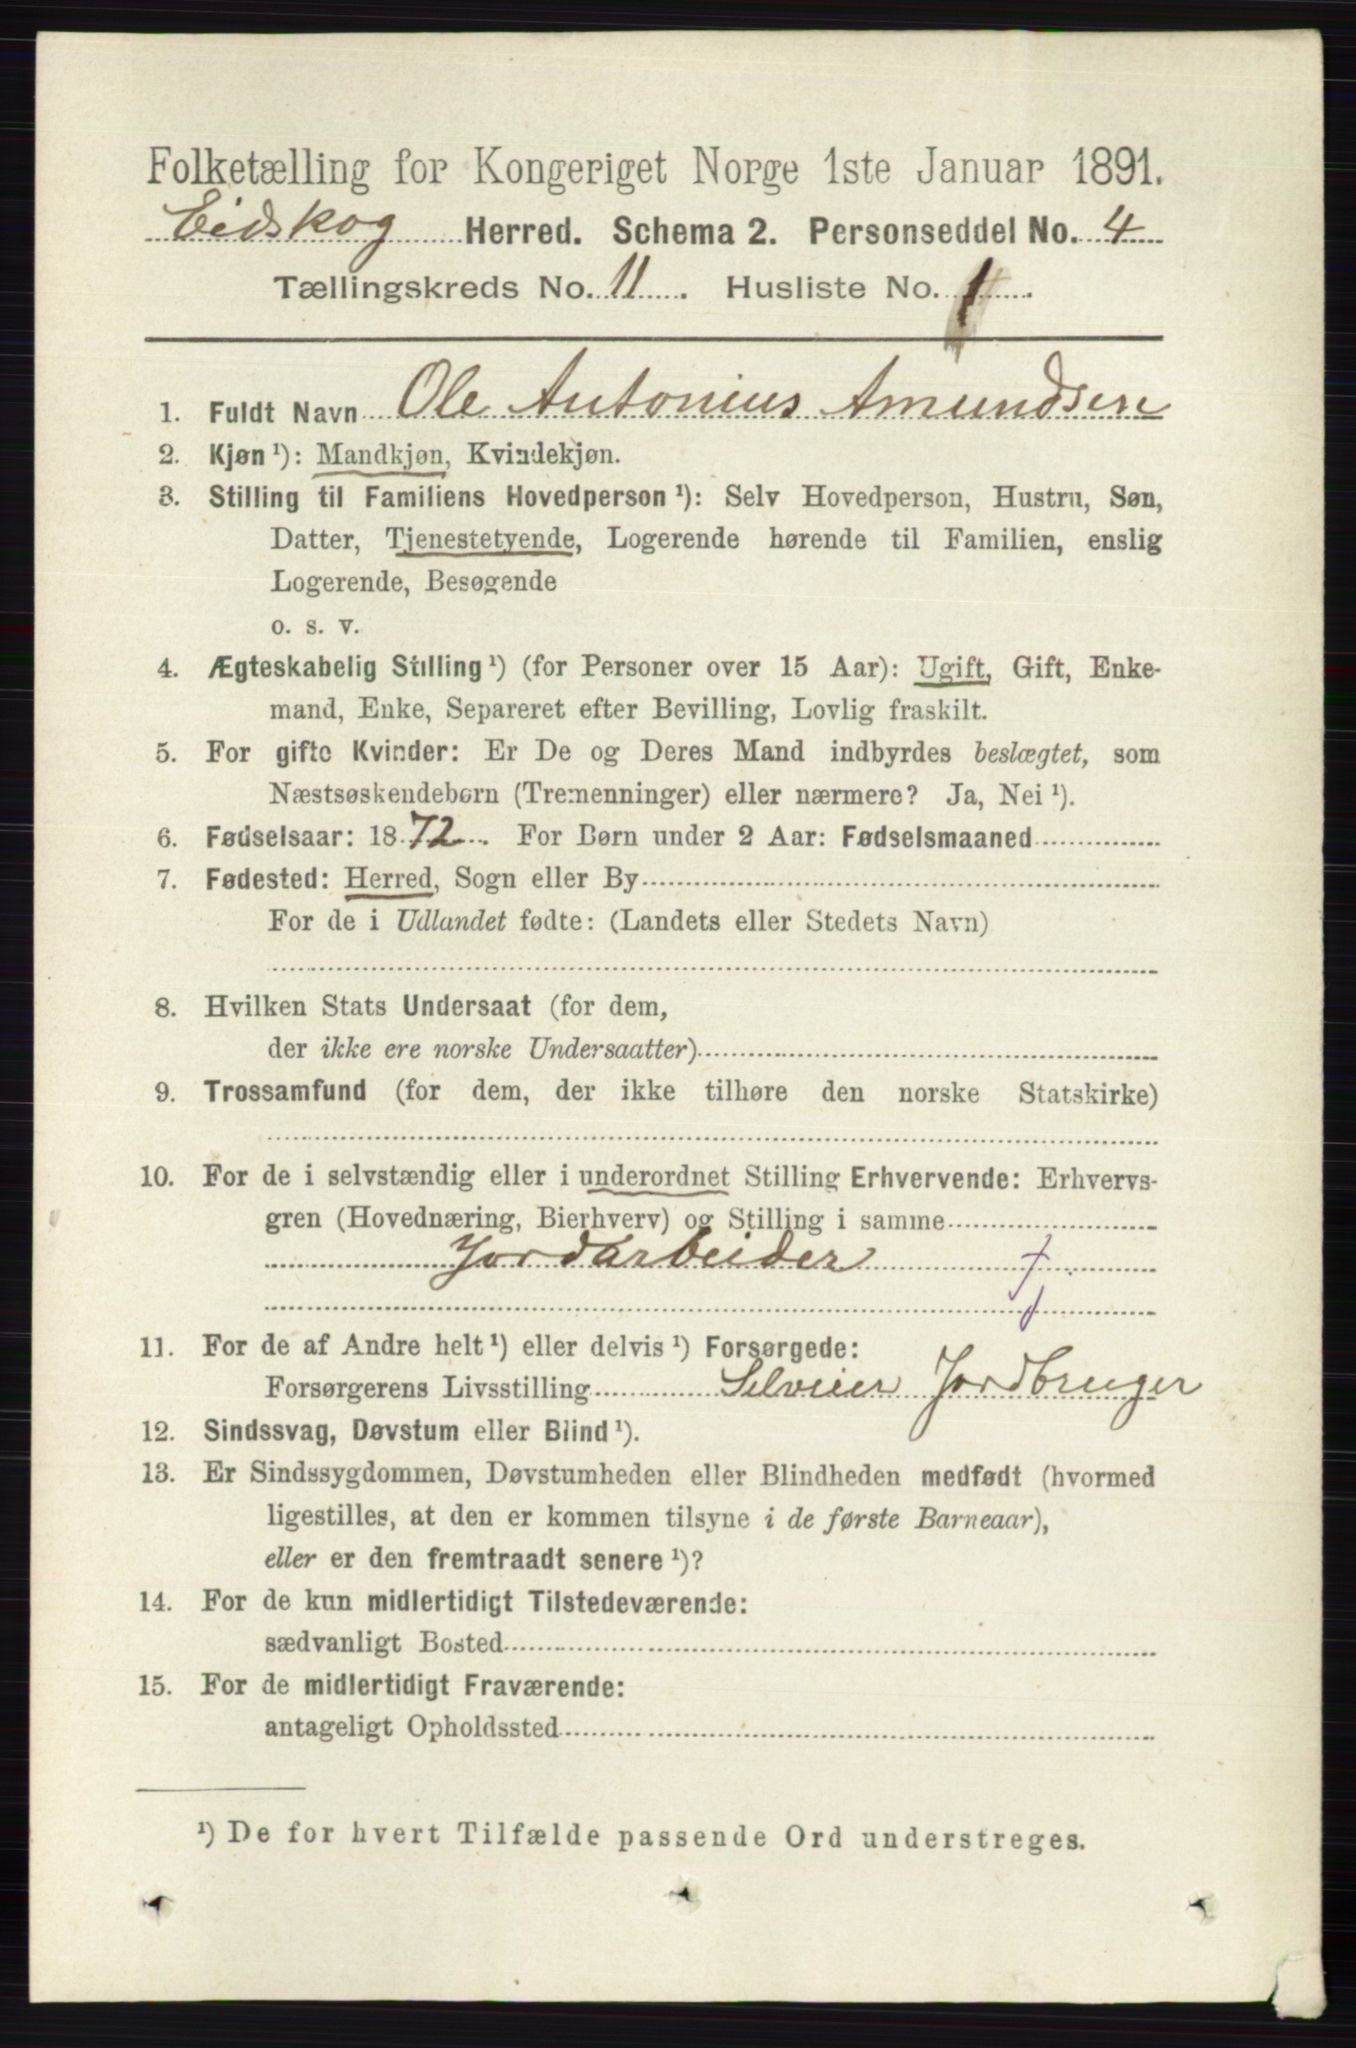 Folketælling for Kongeriget Norge 1ste Januar 1891.
Eidskog Herred. Schema 2. Personseddel No. 4
Tællingskreds No. 11. Husliste No. 1.
1. Fuldt Navn Ole Antonius Amundsen
2. Kjøn ¹): Mandkjøn, Kvindekjøn.
3. Stilling til Familiens Hovedperson ¹): Selv Hovedperson, Hustru, Søn,
Datter, Tjenestetyende, Logerende hørende til Familien, enslig
Logerende, Besøgende
o. s. v.
4. Ægteskabelig Stilling ¹) (for Personer over 15 Aar): Ugift, Gift, Enke-
mand, Enke, Separeret efter Bevilling, Lovlig fraskilt.
5. For gifte Kvinder: Er De og Deres Mand indbyrdes beslægtet, som
Næstsøskendebørn (Tremenninger) eller nærmere? Ja, Nei ¹).
6. Fødselsaar: 1872. For Børn under 2 Aar: Fødselsmaaned
7. Fødested: Herred, Sogn eller By
For de i Udlandet fødte: (Landets eller Stedets Navn)
8. Hvilken Stats Undersaat (for dem,
der ikke ere norske Undersaatter)
9. Trossamfund (for dem, der ikke tilhøre den norske Statskirke)
10. For de i selvstændig eller i underordnet Stilling Erhvervende: Erhvervs-
gren (Hovednæring, Bierhverv) og Stilling i samme
Jordarbeider
11. For de af Andre helt ¹) eller delvis ¹) Forsørgede:
Forsørgerens Livsstilling Selveier Jordbruger
12. Sindssvag, Døvstum eller Blind ¹).
13. Er Sindssygdommen, Døvstumheden eller Blindheden medfødt (hvormed
ligestilles, at den er kommen tilsyne i de første Barneaar),
eller er den fremtraadt senere ¹)?
14. For de kun midlertidigt Tilstedeværende:
sædvanligt Bosted
15. For de midlertidigt Fraværende:
antageligt Opholdssted
¹) De for hvert Tilfælde passende Ord understreges.